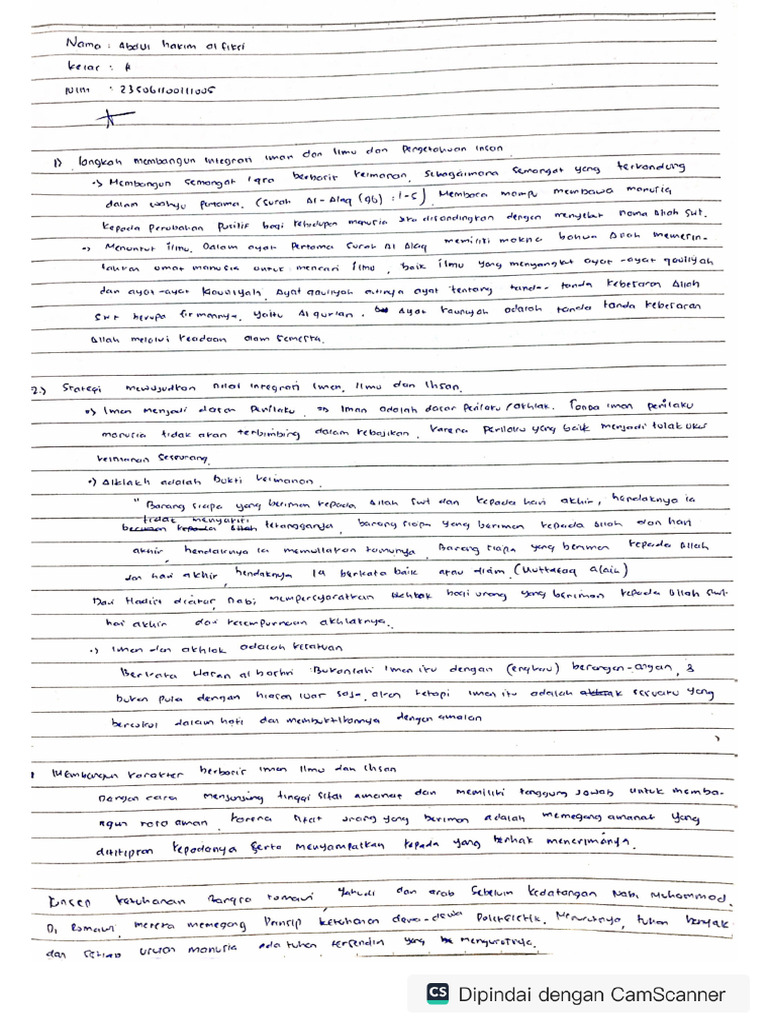 Nama : Abdul hakim al fikri
Kelas : A
NIM : 235061100111005
1) langkah membangun integrasi iman dan Ilmu dan Pengetahuan Insan
•> Membangun semangat iqra berbasis keimanan, sebagaimana semangat yang terkandung
dalam wahyu pertama. (surah Al-Alaq (96) : 1-5). Membaca mampu membawa manusia
kepada perubahan Positif bagi kehidupan manusia jika disandingkan dengan menyebut nama Allah swt.
•> Menuntut ilmu. Dalam ayat Pertama surah Al Alaq memiliki makna bahwa Allah memerin-
tahkan umat manusia untuk mencari Ilmu, baik ilmu yang menyangkut ayat-ayat qauliyah
dan ayat-ayat Kauniyah. Ayat qauliyah artinya ayat tentang tanda-tanda kebesaran Allah
SWT berupa firmannya, yaitu Al qur'an. Ayat kauniyah adalah tanda tanda kebesaran
Allah melalui keadaan alam semesta.
2.) Strategi mewujudkan nilai integrasi Iman, Ilmu dan Ihsan.
•) Iman menjadi dasar Perilaku, => Iman adalah dasar perilaku / akhlak. Tanpa iman perilaku
manusia tidak akan terbimbing dalam kebajikan, karena perilaku yang baik menjadi tolak ukur
keimanan seseorang.
•) Akhlakh adalah bukti keimanan.
" Barang siapa yang beriman kepada Allah swt dan kepada hari akhir, hendaknya ia
tidak menyakiti
tetangganya, barang siapa yang beriman kepada Allah dan hari
akhir, hendaknya ia memuliakan tamunya, Barang siapa yang beriman kepada Allah
dan hari akhir, hendaknya ia berkata baik atau diam. (Muttafaq Alaih)
Dari Hadits diatas, nabi mempersyaratkan bagi orang yang beriman kepada Allah swt.
hari akhir dari kesempurnaan akhlaknya.
•) Iman dan akhlak adalah kesatuan
Berkata Hasan al bashri : Bukanlah iman itu dengan (engkau) berangan-angan, &
bukan pula dengan hiasan luar saja, akan tetapi iman itu adalah sesuatu yang
bercokol dalam hati dan membuktikannya dengan amalan
Membangun karakter berbasis iman Ilmu dan Ihsan
Dengan cara menjunjung tinggi sifat amanat dan memiliki tanggung jawab untuk memba-
ngun rasa aman. Karena sifat orang yang beriman adalah memegang amanat yang
dititipkan kepadanya serta menyampaikan kepada yang berhak menerimanya.
Konsep ketuhanan Bangsa romawi, Yahudi dan arab sebelum kedatangan Nabi Muhammad.
Di Romawi, mereka memegang Prinsip ketuhanan dewa-dewa Politeistik. Menurutnya, tuhan banyak
dan setiap urusan manusia ada tuhan tersendiri yang mengurusnya.
CS Dipindai dengan CamScanner